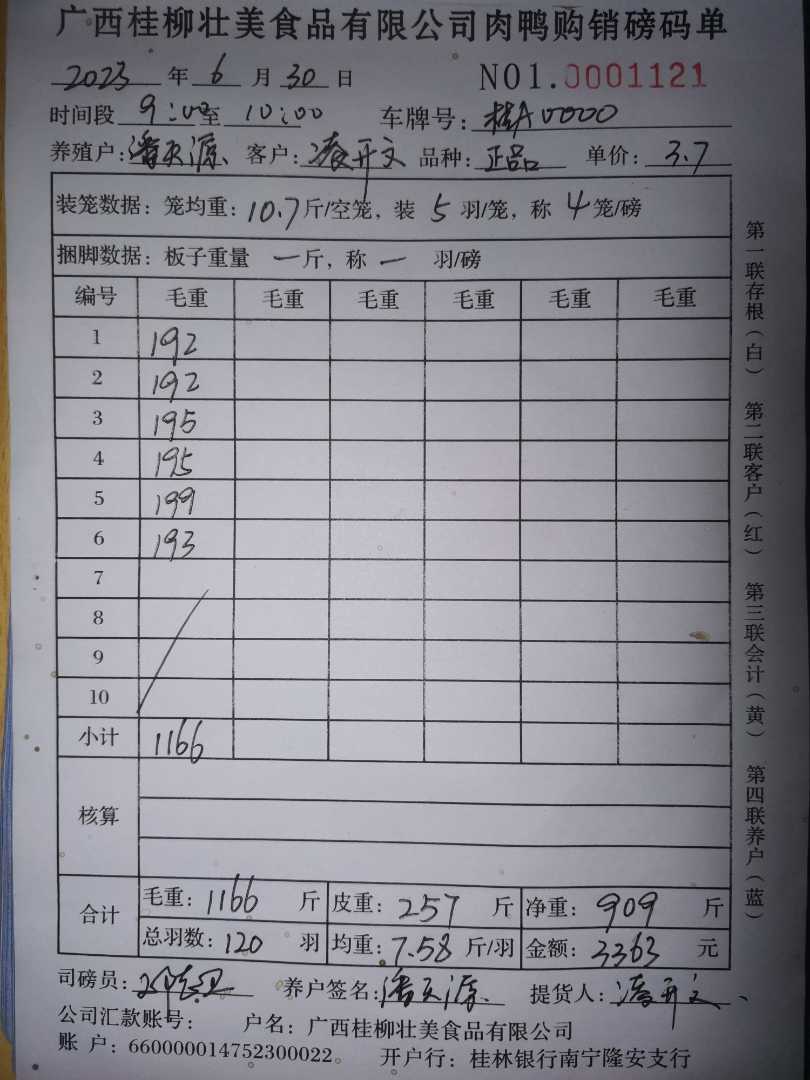 广西桂柳壮美食品有限公司肉鸭购销磅码单
2023 年 6 月 30 日 NO1.0001121
时间段 9:00 至 10:00 车牌号: 桂A0000
养殖户: 潘天源 客户: 凌开文 品种: 正品 单价: 3.7
装笼数据: 笼均重: 10.7 斤/空笼, 装 5 羽/笼, 称 4 笼/磅
捆脚数据: 板子重量 一 斤, 称 一 羽/磅
编号 毛重 毛重 毛重 毛重 毛重 毛重
1 192
2 192
3 195
4 195
5 199
6 193
7
8
9
10
小计 1166
核算
合计 毛重: 1166 斤 皮重: 257 斤 净重: 909 斤
总羽数: 120 羽 均重: 7.58 斤/羽 金额: 3363 元
司磅员: 养户签名: 潘天源 提货人: 凌开文
公司汇款账号: 户名: 广西桂柳壮美食品有限公司
账 户: 660000014752300022 开户行: 桂林银行南宁隆安支行
第一联存根(白) 第二联客户(红) 第三联会计(黄) 第四联养户(蓝)